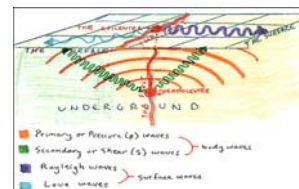 THE EPICENTER
THE SURFACE
THE SURFACE
UNDERGROUND
Primary or Pressure (P) waves
Secondary or Shear (S) waves
body waves
Rayleigh waves
Love waves
Surface waves